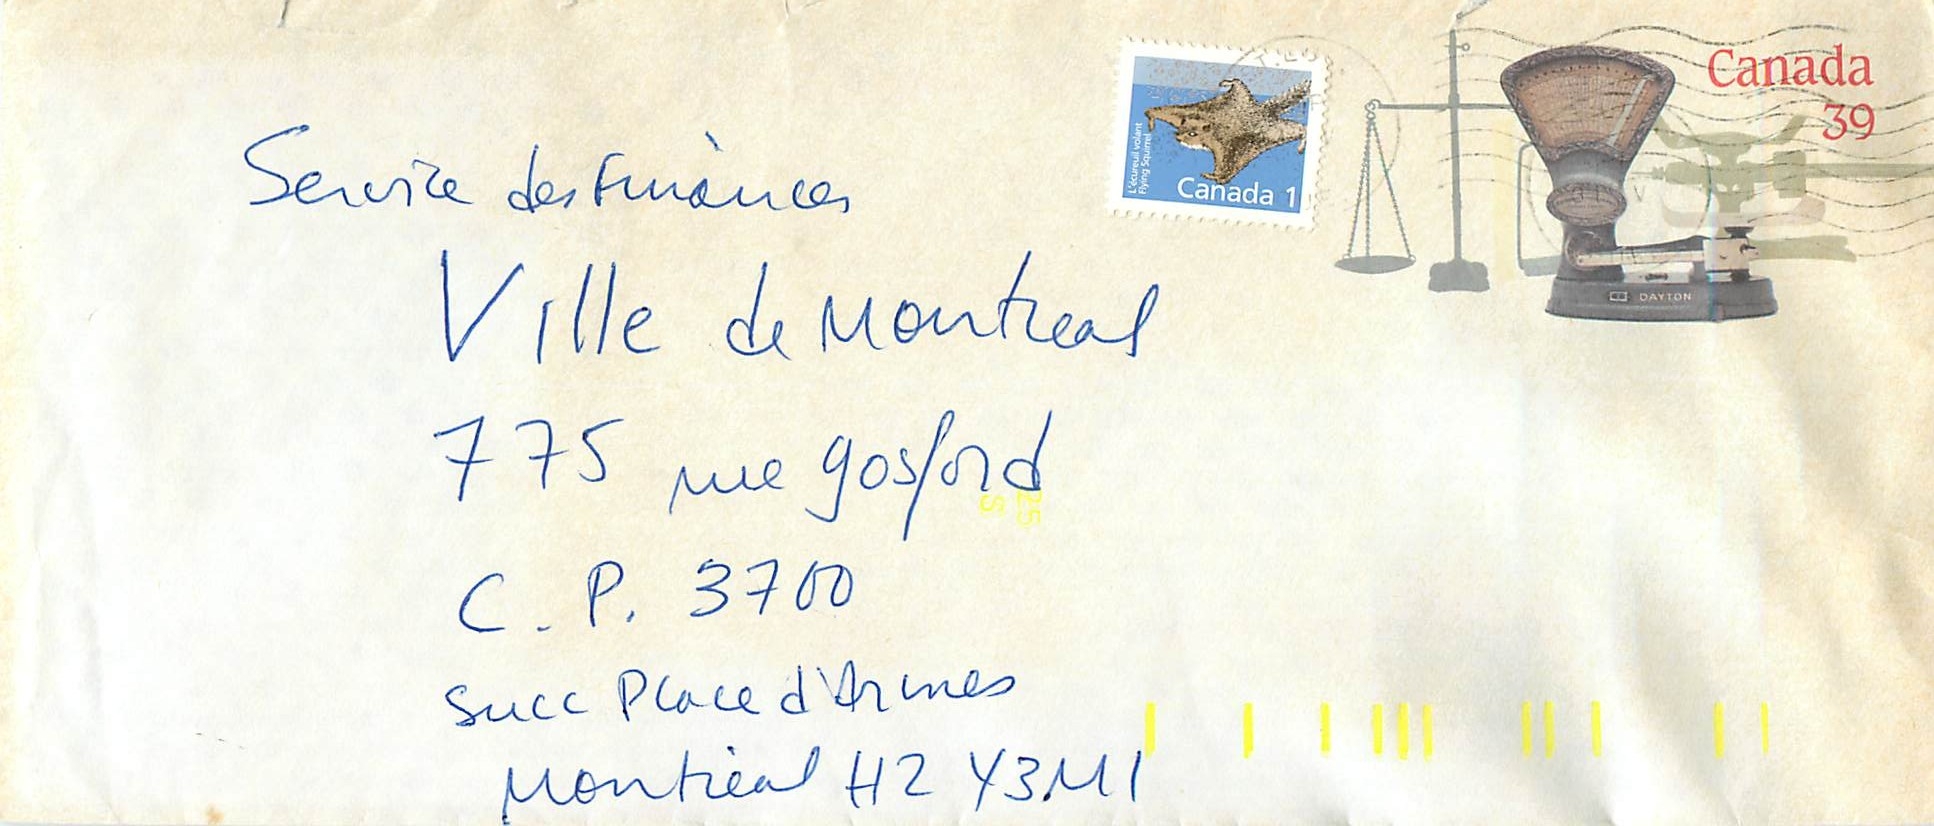 Canada
39
L'écureuil volant
Flying Squirrel
Canada 1
DAYTON
Service des Finances
Ville de Montreal
775 rue gosford
25
S
C. P. 3700
Succ Place d'Armes
Montréal H2Y3M1